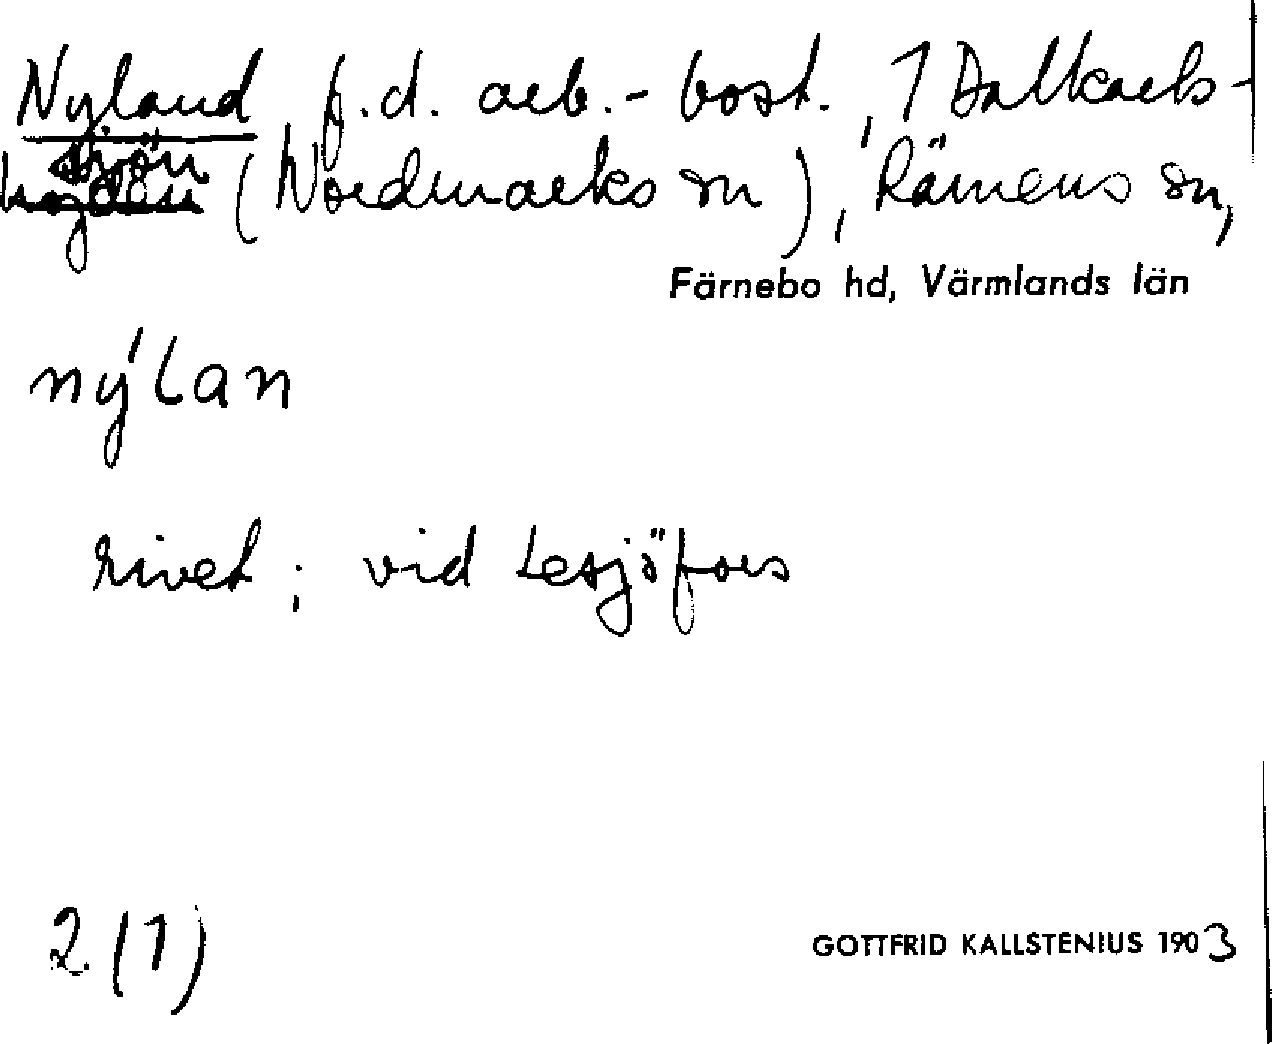 Nyland, f.d. arb.-bost., 1 Dalkarls-
sjön (Nordmarks sn), Rämens sn,
Färnebo hd, Värmlands län
nýlan
rivet; vid Lesjöfors
2 (1)
GOTTFRID KALLSTENIUS 1903